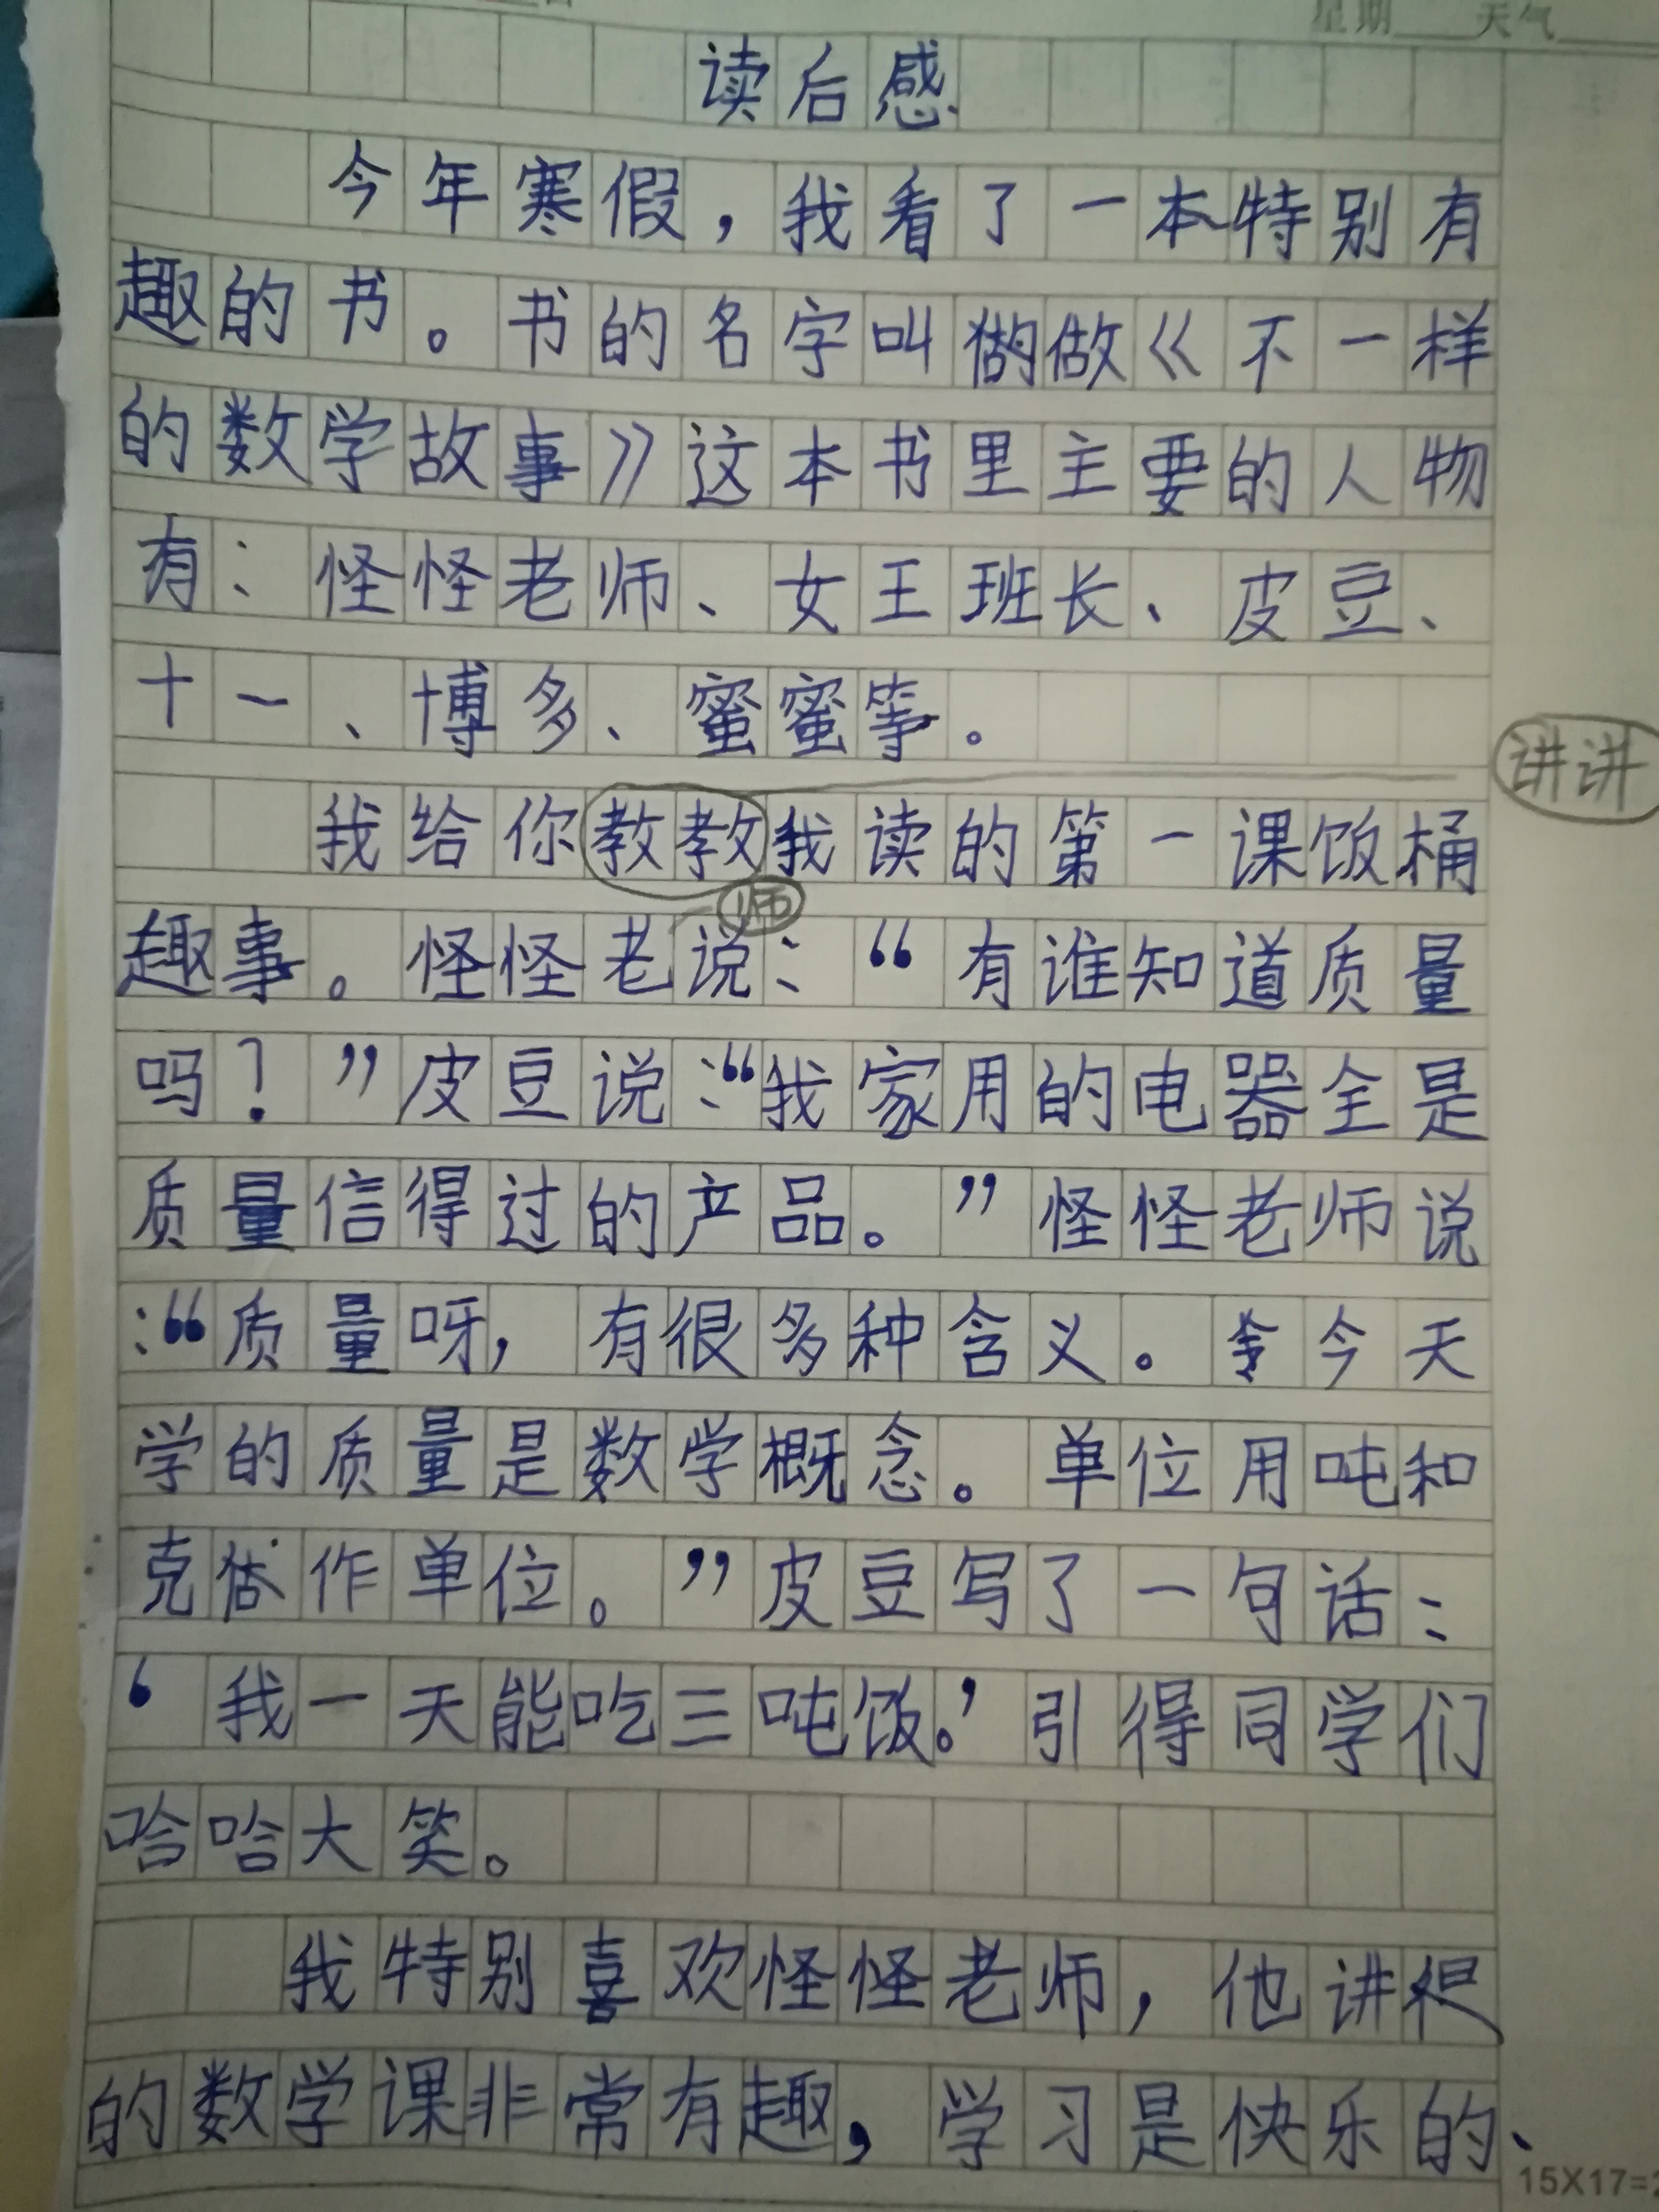 星期 天气
读后感
今年寒假，我看了一本特别有
趣的书。书的名字叫做《不一样
的数学故事》这本书里主要的人物
有：怪怪老师、女王班长、皮豆、
十一、博多、蜜蜜等。
讲讲
我给你教教我读的第一课饭桶
师
趣事。怪怪老说：“有谁知道质量
吗？”皮豆说：“我家用的电器全是
质量信得过的产品。”怪怪老师说
：“质量呀，有很多种含义。今天
学的质量是数学概念。单位用吨和
克作单位。”皮豆写了一句话：
‘我一天能吃三吨饭。’引得同学们
哈哈大笑。
我特别喜欢怪怪老师，他讲
的数学课非常有趣，学习是快乐的、
15X17=